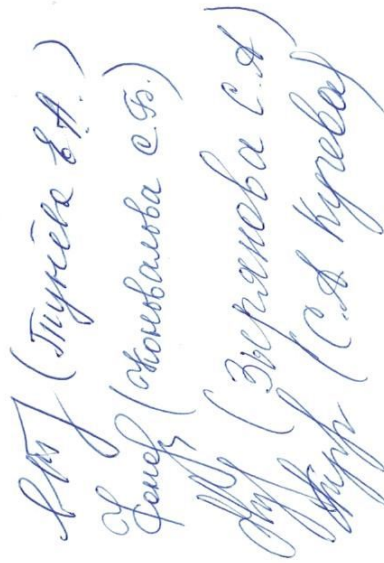 (Тунёва Е.А.)
(Коновалова С.Б.)
(Зырянова С.А)
(С.А Кучева)